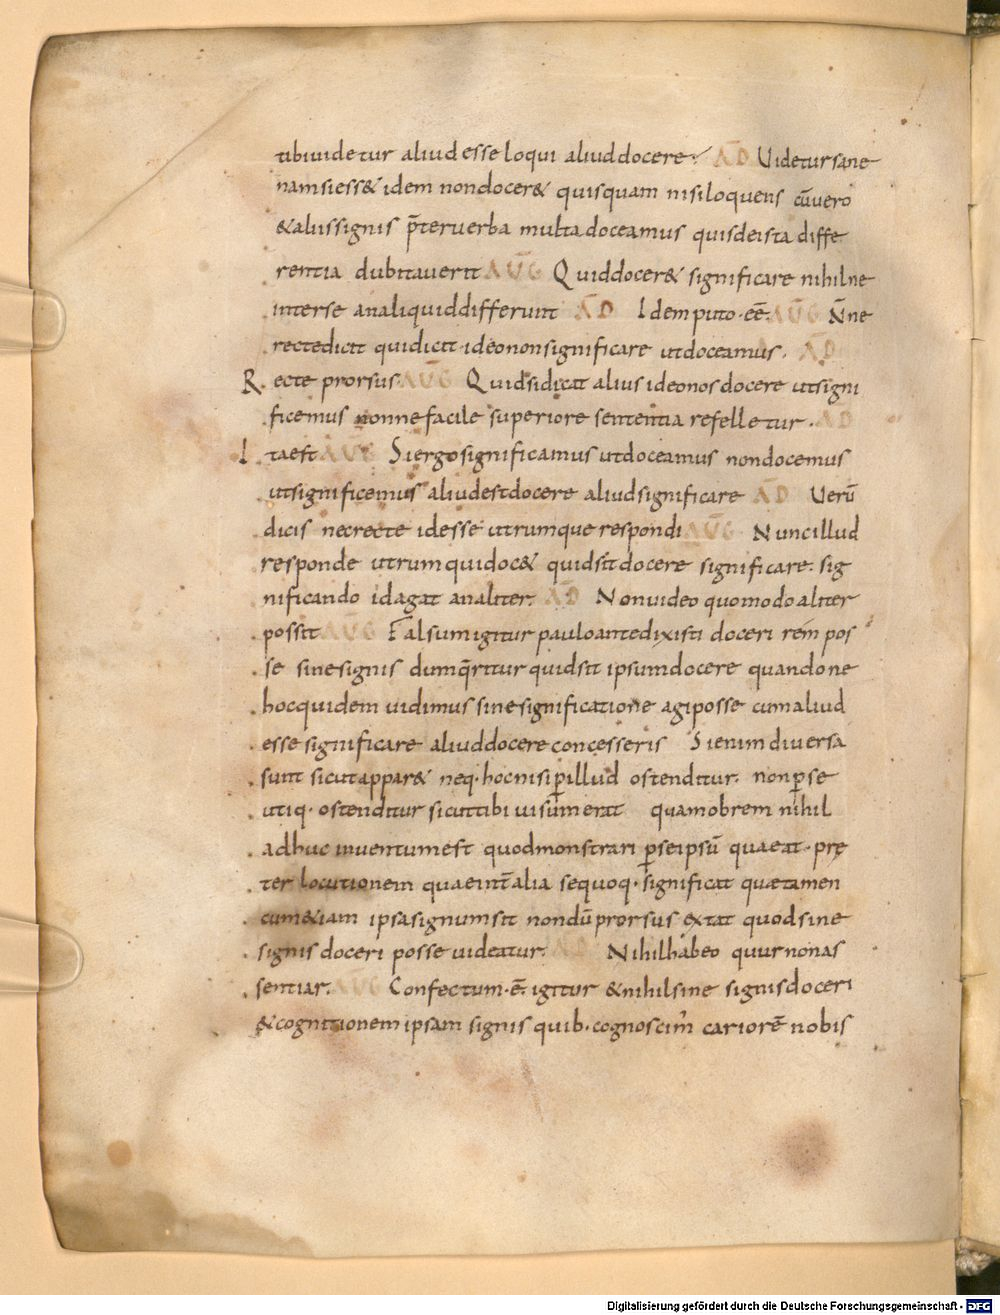 tibiuidetur aliud esse loqui aliud docere; AD̄ Uidetur sane
nam si ess& idem non docer& quisquam nisi loquens cū uero
& aliis signis p̄ter uerba multa doceamus quis de ista diffe
rentia dubitauerit AŪG Quid docer& significare nihil ne
inter se an aliquid differunt AD̄ Idem puto · eē· AŪG N̄ne
recte dicit qui dicit · ideo non significare ut doceamus. AD̄
Recte prorsus AŪG Quid si dicat alius ideo nos docere ut signi
ficemus nonne facile superiore sententia refelletur · AD̄
Ita est AŪG Si ergo significamus ut doceamus non docemus
ut significemus aliud est docere aliud significare AD̄ Uerū
dicis nec recte id esse utrumque respondi AŪG Nunc illud
responde utrum qui doc& quid sit docere significare. sig
nificando id agat an aliter. AD̄ Non uideo quomodo aliter
possit AŪG Falsum igitur paulo ante dixisti doceri rem pos
se sine signis dum q̄ritur quid sit ipsum docere quando ne
hoc quidem uidimus sine significatione agi posse cum aliud
esse significare aliud docere concesseris Si enim diuersa
sunt sicut appar& neq· hoc nisi ꝑ illud ostenditur. non ꝑ se
utiq· ostenditur sicut tibi uisum erat quamobrem nihil
adhuc inuentum est quod monstrari ꝑ se ipsū quaeat · prę
ter locutionem quae int̄ alia se quoq· significat quæ tamen
cum & iam ipsa signum sit nondū prorsus extat quod sine
signis doceri posse uideatur. AD̄ Nihil habeo quur non as
sentiar. AŪG Confectum · ē· igitur & nihil sine signis doceri
& cognitionem ipsam signis quib· cognoscim̄ cariorē nobis
Digitalisierung gefördert durch die Deutsche Forschungsgemeinschaft - DFG